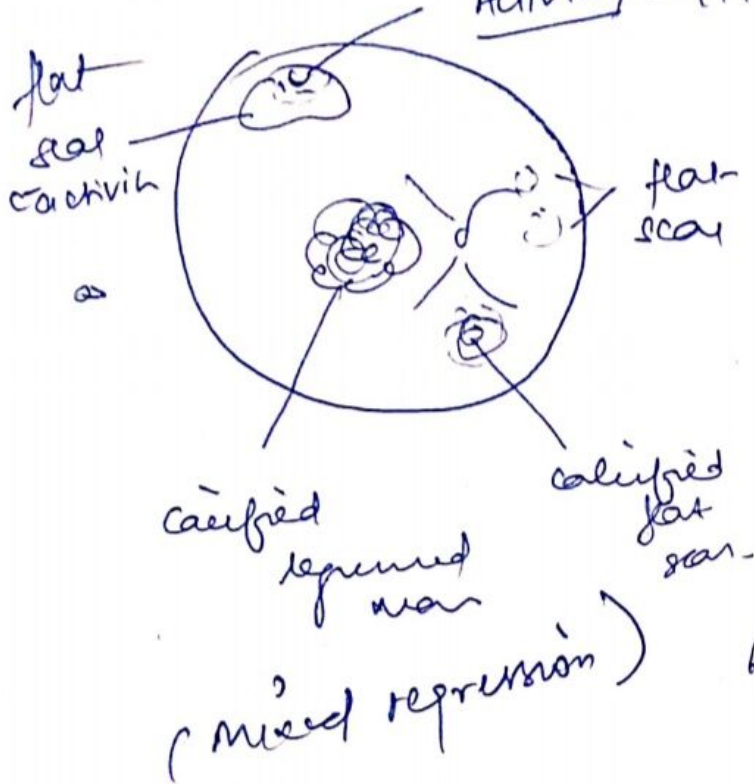 flat
scar
c̄ activity
flat
scar
calcified
regressed
mass
calcified
flat
scar
(mixed regression)